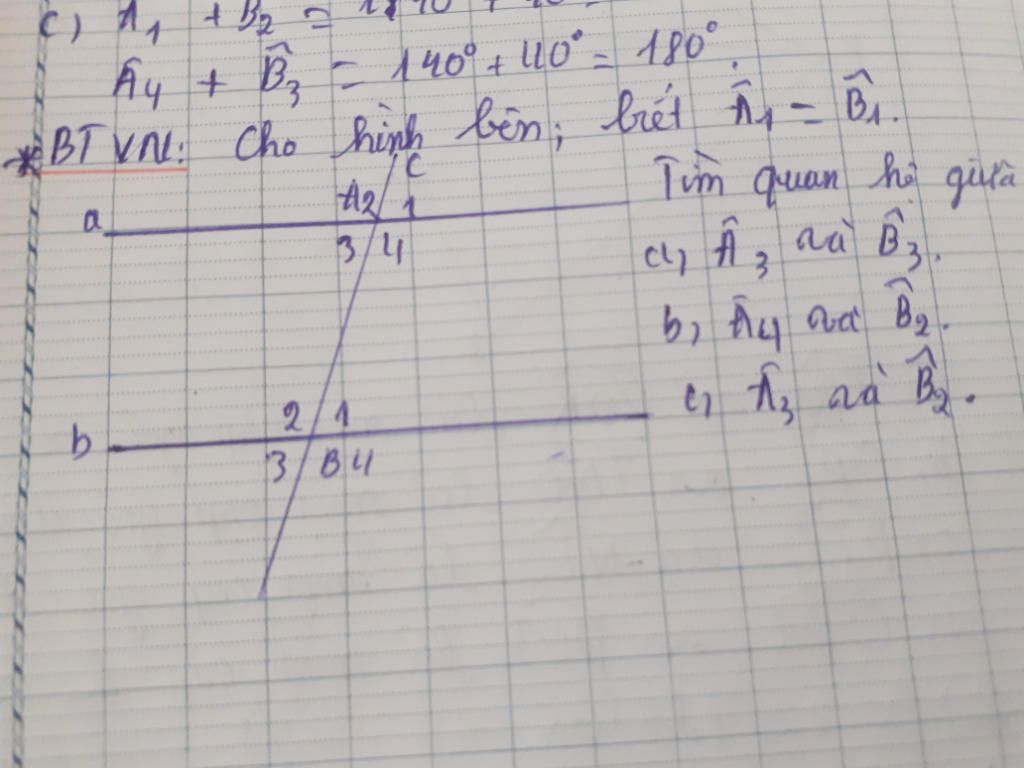 c) Â1 + B2 =
Â4 + B̂3 = 140° + 40° = 180°.
* BTVN: Cho hình bên; biết Â1 = B̂1.
Tìm quan hệ giữa
a) Â3 và B̂3.
b) Â4 và B̂2.
c) Â3 và B̂2.
c
A2 1
a
3 4
2 1
b
3 B 4